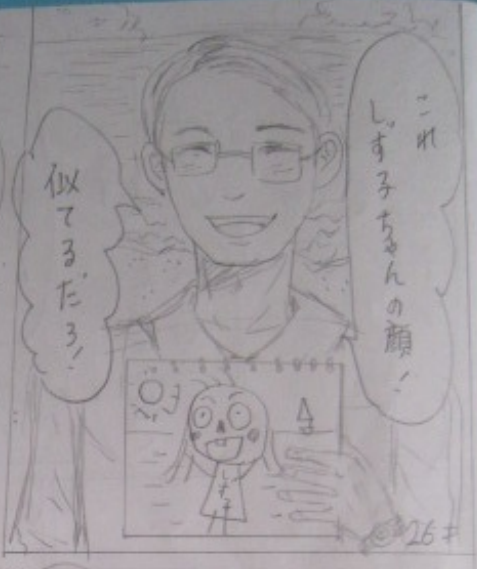 これ
しず子ちゃんの顔！
似てるだろ！